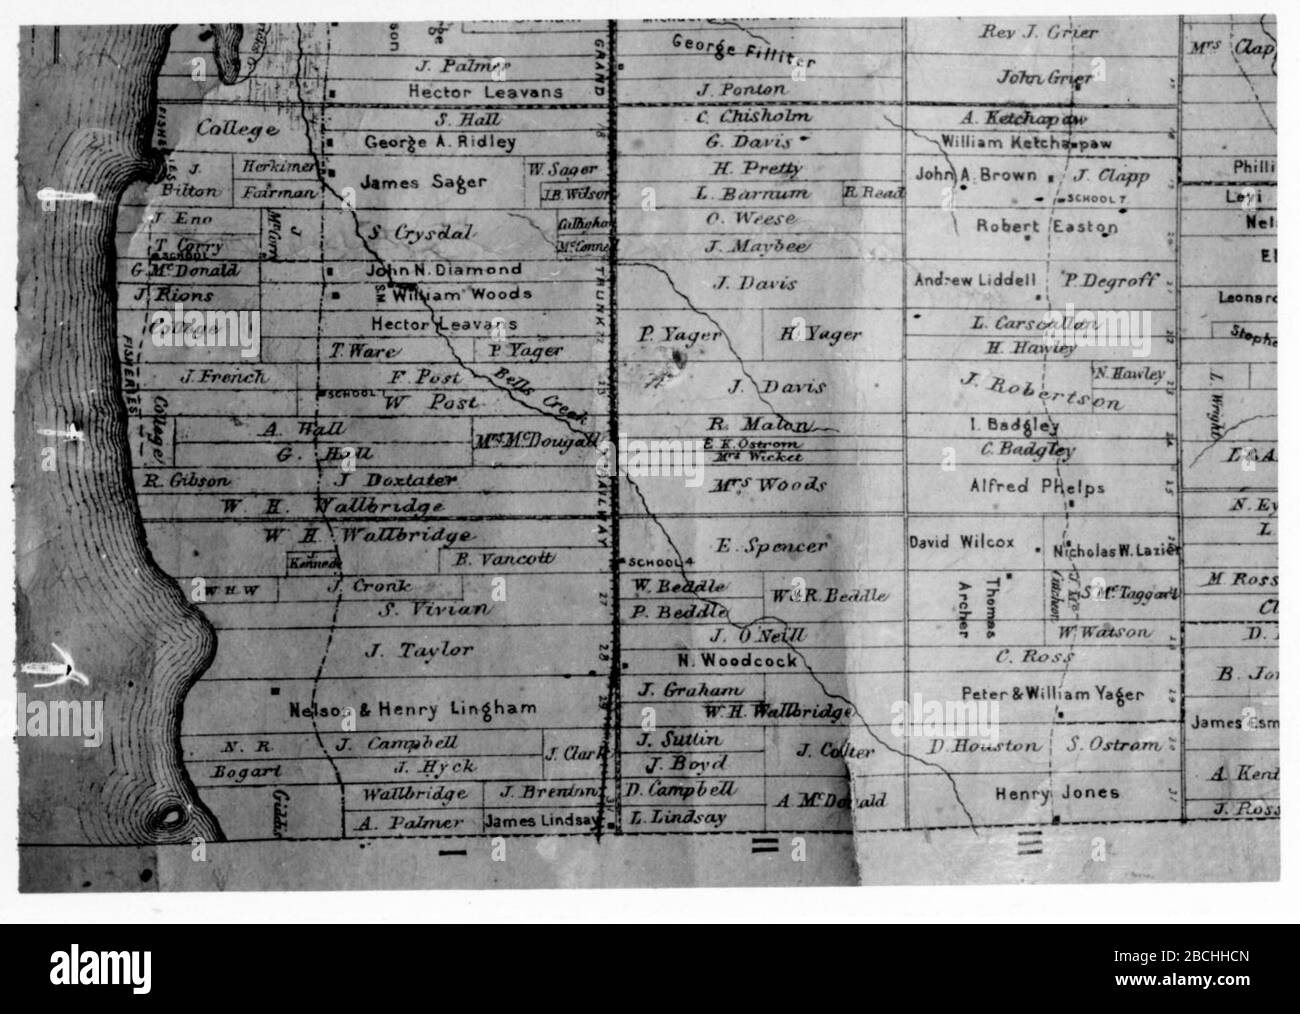 George Filliter
Rev J. Grier
Mrs Clapp
J. Palmer
John Grier
Hector Leavans
J. Ponton
GRAND
College
S. Hall
C. Chisholm
A. Ketchapaw
George A. Ridley
G. Davis
William Ketchapaw
FISHERIES
J. Bilton
Herkimer
Fairman
James Sager
W. Sager
J.B. Wilson
H. Pretty
L. Barnum
R. Read
John A. Brown
J. Clapp
SCHOOL 7
Phill
Levi
J. Eno
J McCorry
S. Crysdal
Callighan
O. Weese
Robert Easton
Nel
T. Corry
SCHOOL
McConnel
J. Maybee
El
G. McDonald
John N. Diamond
TRUNK
J. Rions
S.M
William Woods
J. Davis
Andrew Liddell
P. Degroff
Leonard
College
Hector Leavans
P. Yager
H. Yager
L. Carscallan
Stephe
T. Ware
P. Yager
H. Hawley
FISHERIES
J. French
F. Post
Bells Creek
J. Davis
J. Robertson
N. Hawley
SCHOOL
W Post
J. Wright
College
A. Hall
Mrs McDougall
R. Maton
I. Badgley
E. K. Ostrom
G. Hall
Mrs Wicket
C. Badgley
L & A
R. Gibson
J Doxtater
RAILWAY
Mrs Woods
Alfred Phelps
25
W. H. Wallbridge
N. Ey
W H. Wallbridge
E. Spencer
David Wilcox
Nicholas W. Lazier
L
J. Kenned
B. Vancott
SCHOOL 4
W H W
J. Cronk
W. Beddle
W & R. Beddle
Thomas Archer
S McTaggart
M Ross
S. Vivian
27
P. Beddle
Cl
J. O'Neill
W. Watson
D.
J. Taylor
28
N. Woodcock
C. Ross
B. Jo
J. Graham
Peter & William Yager
29
Nelson & Henry Lingham
29
W. H. Wallbridge
James Esm
N. R. Bogart
J. Campbell
J. Clark
J. Suttin
J. Colter
D. Houston
S. Ostrom
30
J. Hyck
J. Boyd
A Kent
Giddis
Wallbridge
J. Brenton
31
D. Campbell
A McDonald
Henry Jones
31
A. Palmer
James Lindsay
L. Lindsay
J. Ross
I
II
III
alamy
Image ID: 2BCHHCN
www.alamy.com